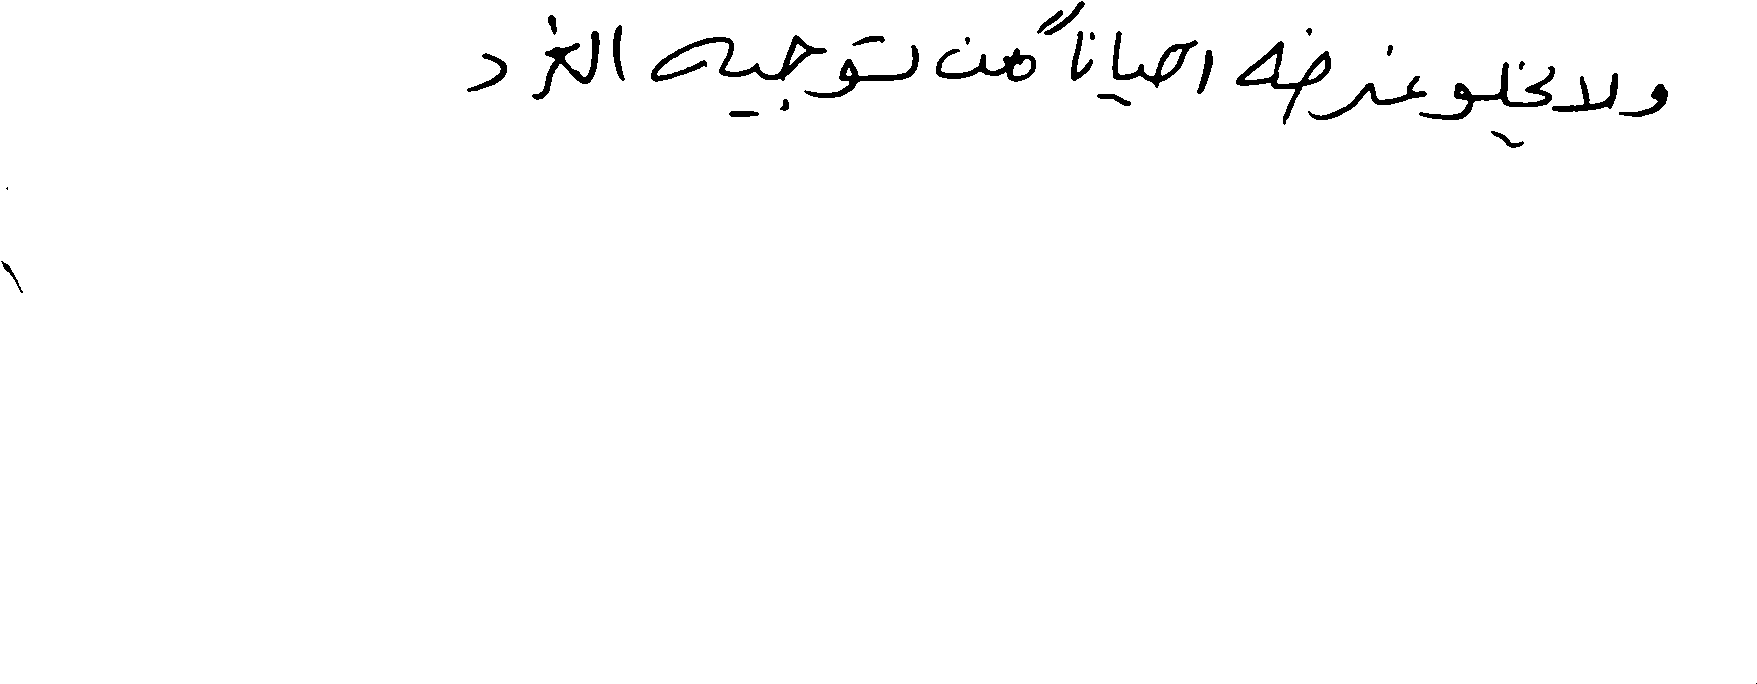 ولا يخلو غرضه احياناً من توجيه الغرد